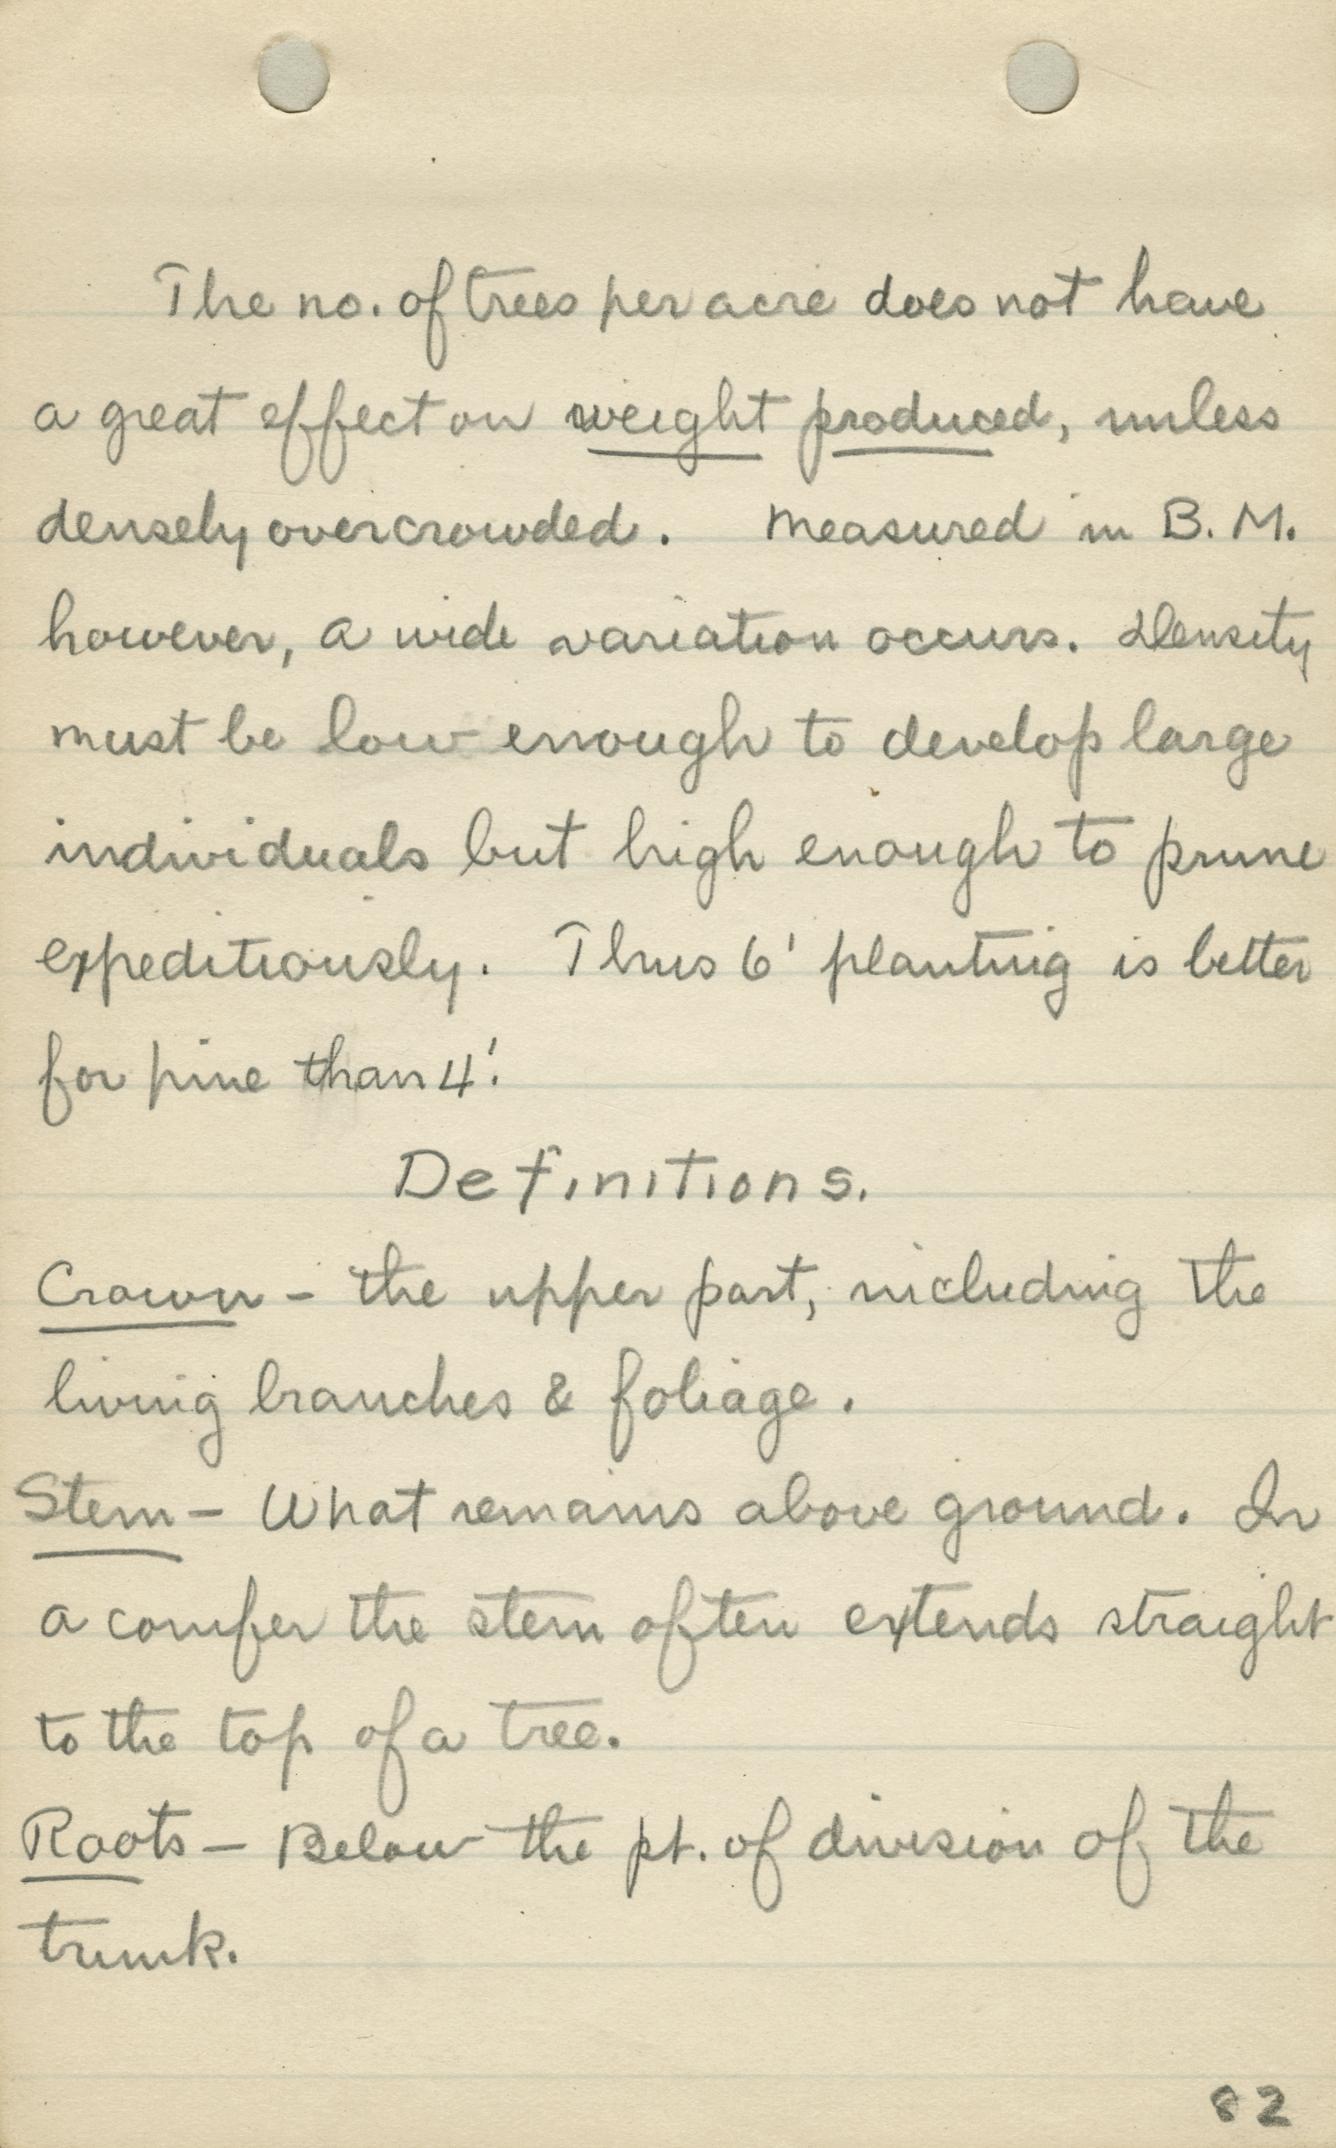 The no. of trees per acre does not have
a great effect on weight produced, unless
densely overcrowded. Measured in B. M.
however, a wide variation occurs. Density
must be low enough to develop large
individuals but high enough to prune
expeditiously. Thus 6' planting is better
for pine than 4'.
Definitions.
Crown - the upper part, including the
living branches & foliage.
Stem - What remains above ground. In
a conifer the stem often extends straight
to the top of a tree.
Roots - Below the pt. of division of the
trunk.
82